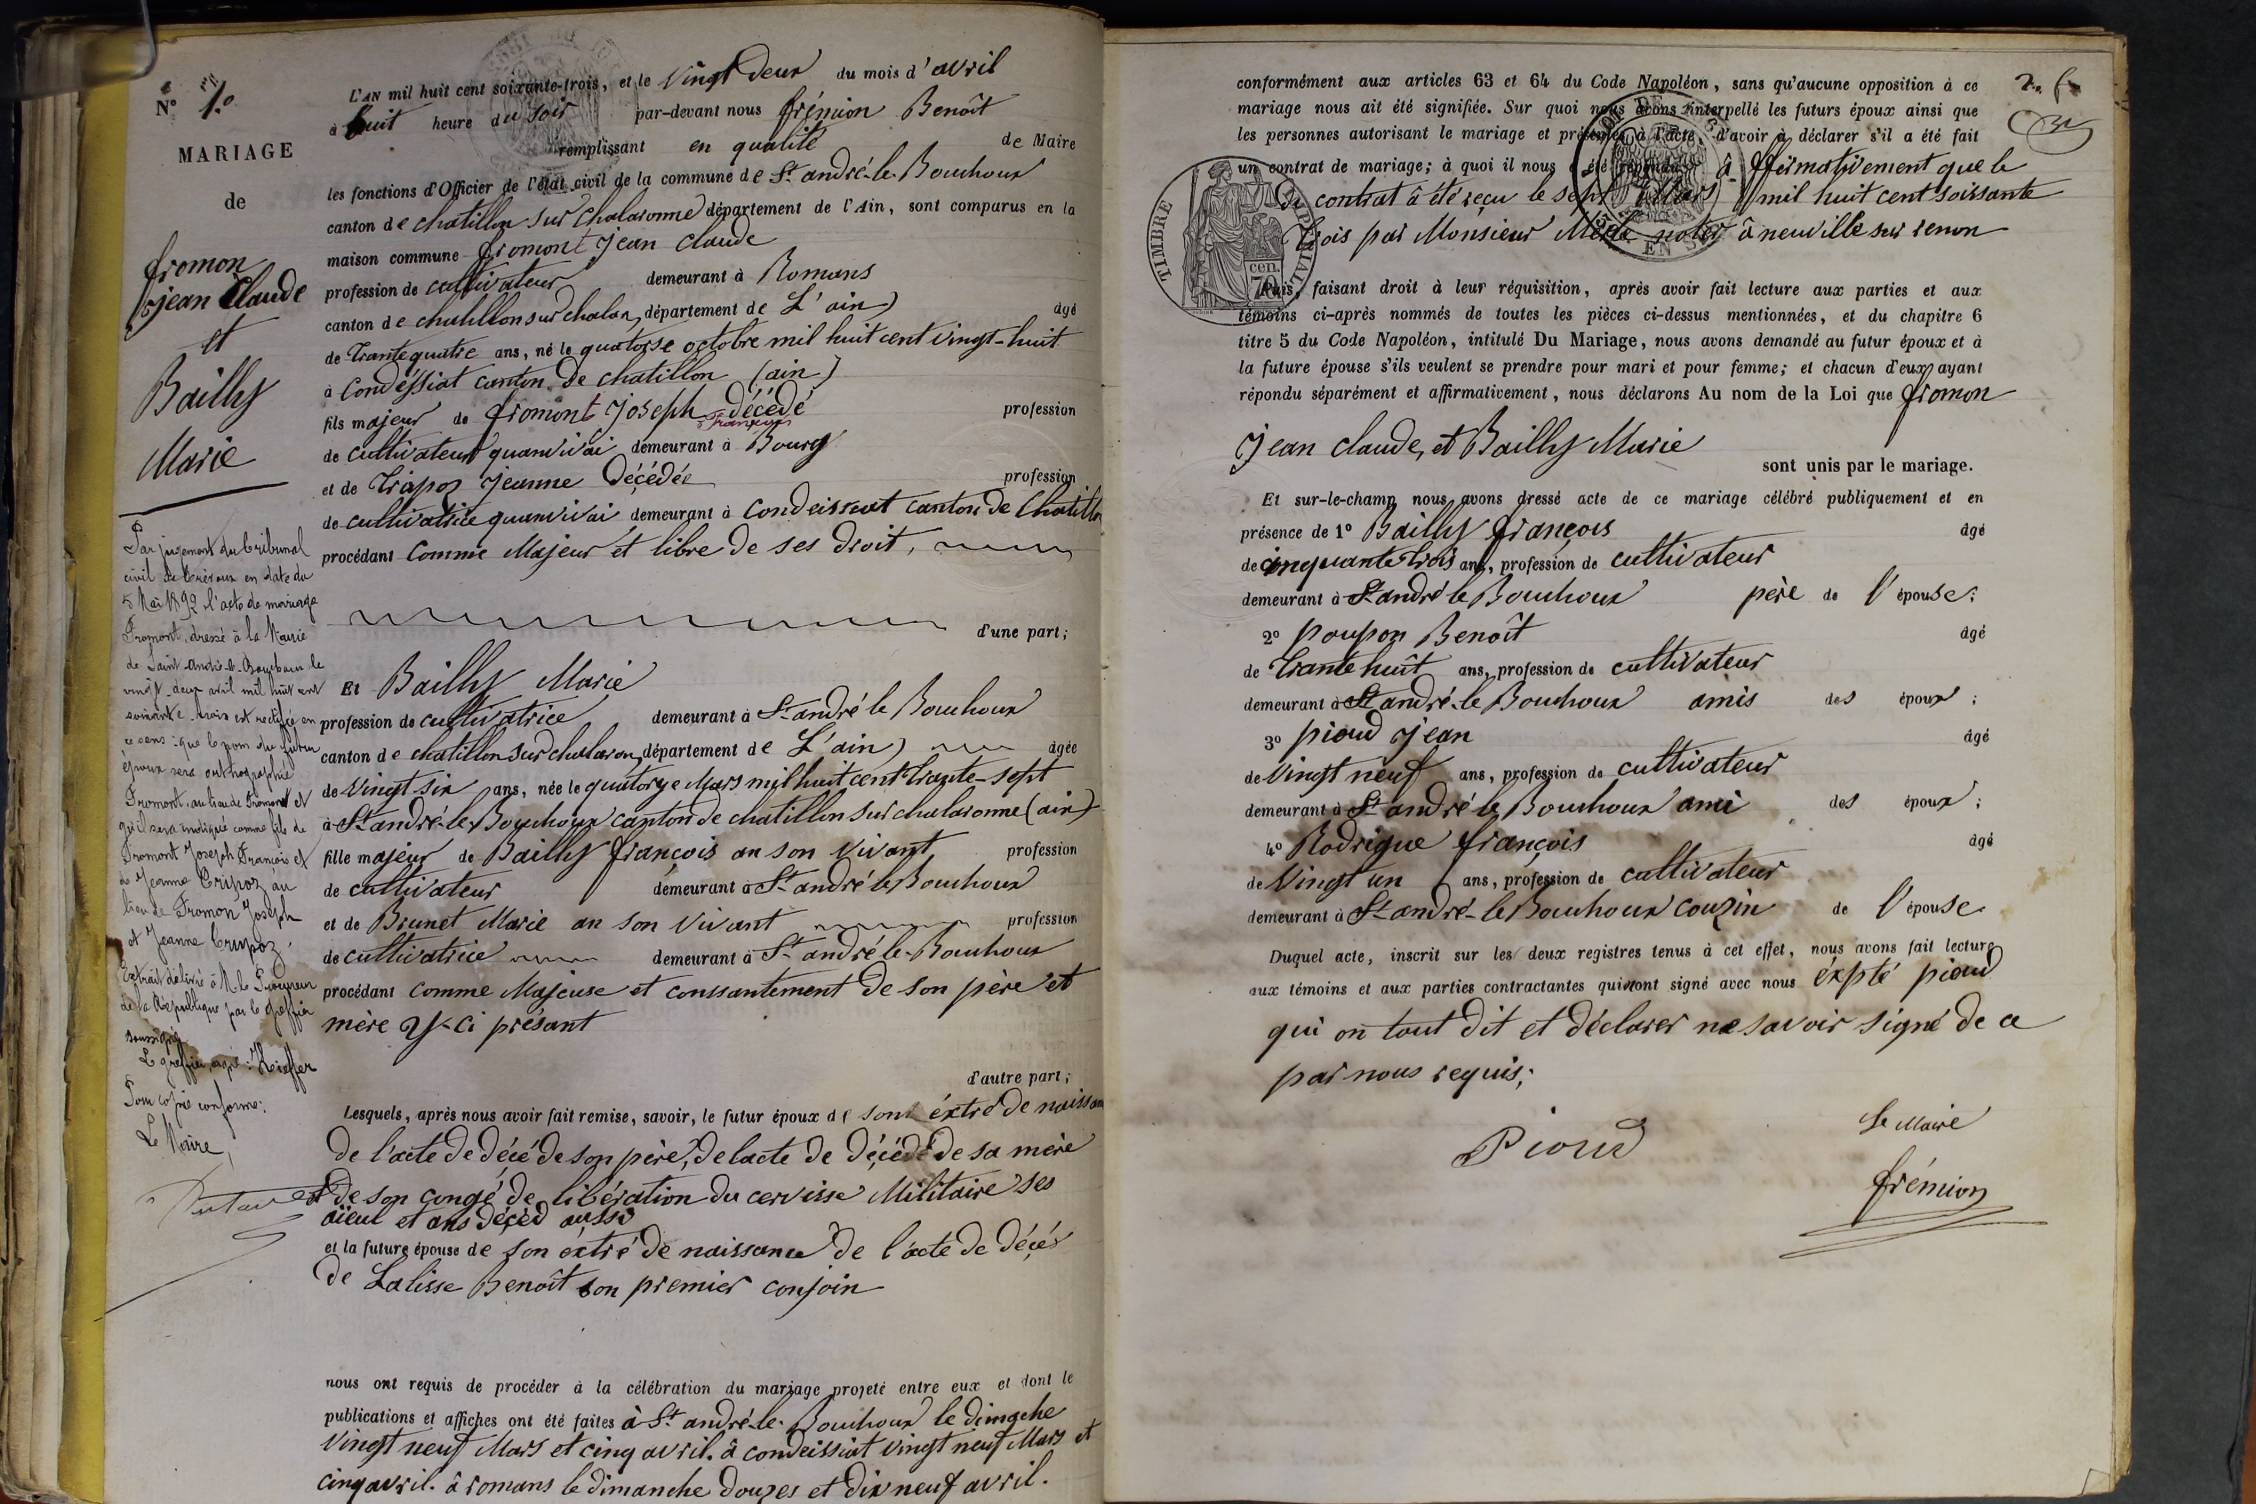 N° 1.°
MARIAGE
de
fromon
jean Claude
et
Bailly
Marie
Par jugement du tribunal
civil de Trévoux en date du
5 Mai 1892 l'acte de mariage
Fromont, dressé à la Mairie
de Saint-André-le-Bouchoux le
vingt-deux avril mil huit cent
soixante-trois est rectifié en
ce sens: que le nom du futur
époux sera orthographié
Fromont, au lieu de Fromon et
qu'il sera indiqué comme fils de
Fromont Joseph François et
de Jeanne Tripoz au
lieu de Fromon Joseph
et Jeanne Trapoz.
Extrait délivré à M. le Procureur
de la République par le Greffier
soussigné
Le greffier, signé: Kieffer
Pour copie conforme:
Le Maire,
L'AN mil huit cent soixante-trois, et le vingt deux du mois d'avril
à huit heure du soir par-devant nous frémion Benoît
remplissant en qualité de Maire
les fonctions d'Officier de l'état civil de la commune de St andré-le-Bouchoux
canton de chatillon sur chalaronne département de l'Ain, sont comparus en la
maison commune fromont jean claude
profession de cultivateur demeurant à Romans
canton de chatillon sur chalaron, département de L'ain) âgé
de trante quatre ans, né le quatorse octobre mil huit cent vingt-huit
à Condéssiat canton de chatillon (ain)
fils majeur de fromont joseph décédé profession
François
de cultivateur quanvivai demeurant à Bourg
et de Trapoz jeanne Décédée profession
de cultivatrice quanvivai demeurant à Condeissiat canton de Chatillon
procédant comme Majeur et libre de ses droit,
d'une part;
Et Bailly Marie
profession de cultivatrice demeurant à St andré le Bouchoux
canton de chatillon sur chalaron, département de L'ain) âgée
de vingt six ans, née le quatorze Mars mil huit cent trante-sept
à St andré-le-Bouchoux canton de chatillon sur chalaronne (ain)
fille majeur de Bailly françois an son vivant profession
de cultivateur demeurant à St andré le Bouchoux
et de Brunet Marie an son vivant profession
de cultivatrice demeurant à St andré le-Bouchoux
procédant comme Majeuse et conssantement de son père et
mère ci présant
d'autre part;
Lesquels, après nous avoir fait remise, savoir, le futur époux de sont éxtré de naissan
de l'acte de décé de son père, de lacte de décédé de sa mère
et de son congé de libération du cervisse Militaire ses
aïeul et ans décèd aussi
et la future épouse de son éxtré de naissance de l'acte de décés
de Lalisse Benoît son premier conjoin
nous ont requis de procéder à la célébration du mariage projeté entre eux et dont le
publications et affiches ont été faites à St andré-le-Bouchoux le dimache
vingt neuf Mars et cinq avril. à condeissiat vingt neuf Mars et
cinq avril. à romans le dimanche douzes et dix neuf avril.
conformément aux articles 63 et 64 du Code Napoléon, sans qu'aucune opposition à ce
mariage nous ait été signifiée. Sur quoi nous avons interpellé les futurs époux ainsi que
les personnes autorisant le mariage et présentes à l'acte, d'avoir à déclarer s'il a été fait
un contrat de mariage; à quoi il nous a été répondu affirmativement que le
du contrat à été reçu le sept Mars mil huit cent soissante
trois par Monsieur Merle noter à neuville sur renon
TIMBRE IMPÉRIAL
cen.
70
EN S
Puis, faisant droit à leur réquisition, après avoir fait lecture aux parties et aux
témoins ci-après nommés de toutes les pièces ci-dessus mentionnées, et du chapitre 6
titre 5 du Code Napoléon, intitulé Du Mariage, nous avons demandé au futur époux et à
la future épouse s'ils veulent se prendre pour mari et pour femme; et chacun d'eux ayant
répondu séparément et affirmativement, nous déclarons Au nom de la Loi que fromon
jean claude, et Bailly Marie
sont unis par le mariage.
Et sur-le-champ nous avons dressé acte de ce mariage célébré publiquement et en
présence de 1° Bailly françois âgé
de cinquante trois ans, profession de cultivateur
demeurant à St andré le Bouchoux père de l'épouse;
2° poupon Benoît âgé
de trante huît ans, profession de cultivateur
demeurant à St andré-le Bouchoux amis des époux;
3° pioud jean âgé
de vingt neuf ans, profession de cultivateur
demeurant à St andré le Bouchoux ami des époux;
4° Rodrigue françois âgé
de vingt un ans, profession de cultivateur
demeurant à St andré-le Bouchoux couzin de l'épouse
Duquel acte, inscrit sur les deux registres tenus à cet effet, nous avons fait lecture
aux témoins et aux parties contractantes qui ont signé avec nous éxpté pioud
qui on tout dit et déclarer ne savoir signé de ce
par nous requis;
Pioud
Le Maire
frémion